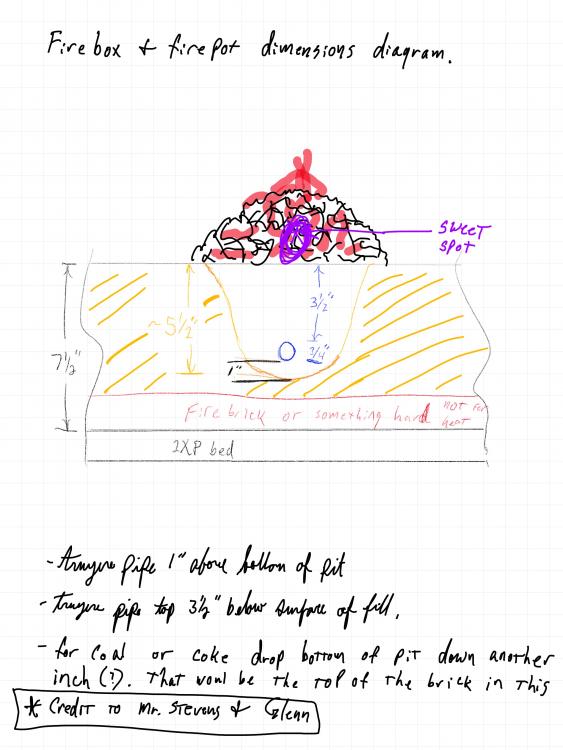 Firebox & firepot dimensions diagram.
sweet
spot
3½"
~5½"
7½"
3/4"
1"
Fire brick or something hard not for
heat
2XP bed
- Tuyere pipe 1" above bottom of pit
- Tuyere pipe top 3½" below surface of fill.
- for coal or coke drop bottom of pit down another
inch (?). That woul be the top of the brick in this
* Credit to Mr. Stevens & Glenn